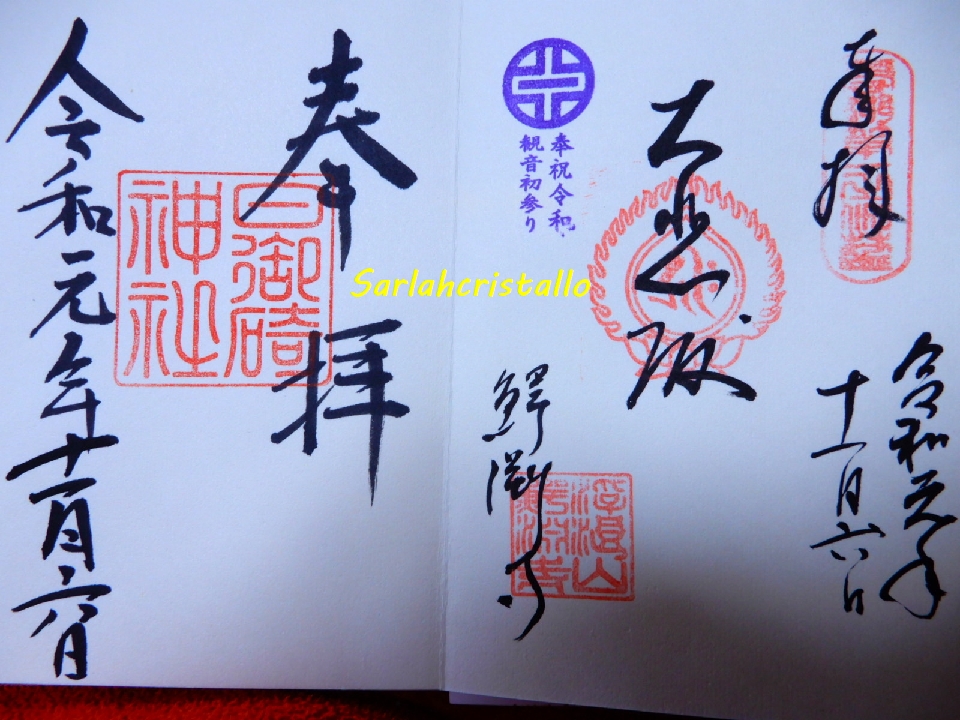 奉拝
令和元年
十一月六日
大悲
奉祝令和
観音初参り
鰐淵寺
浮浪山
鰐淵寺
奉拝
日御碕
神社
令和元年十一月六日
Sarlahcristallo